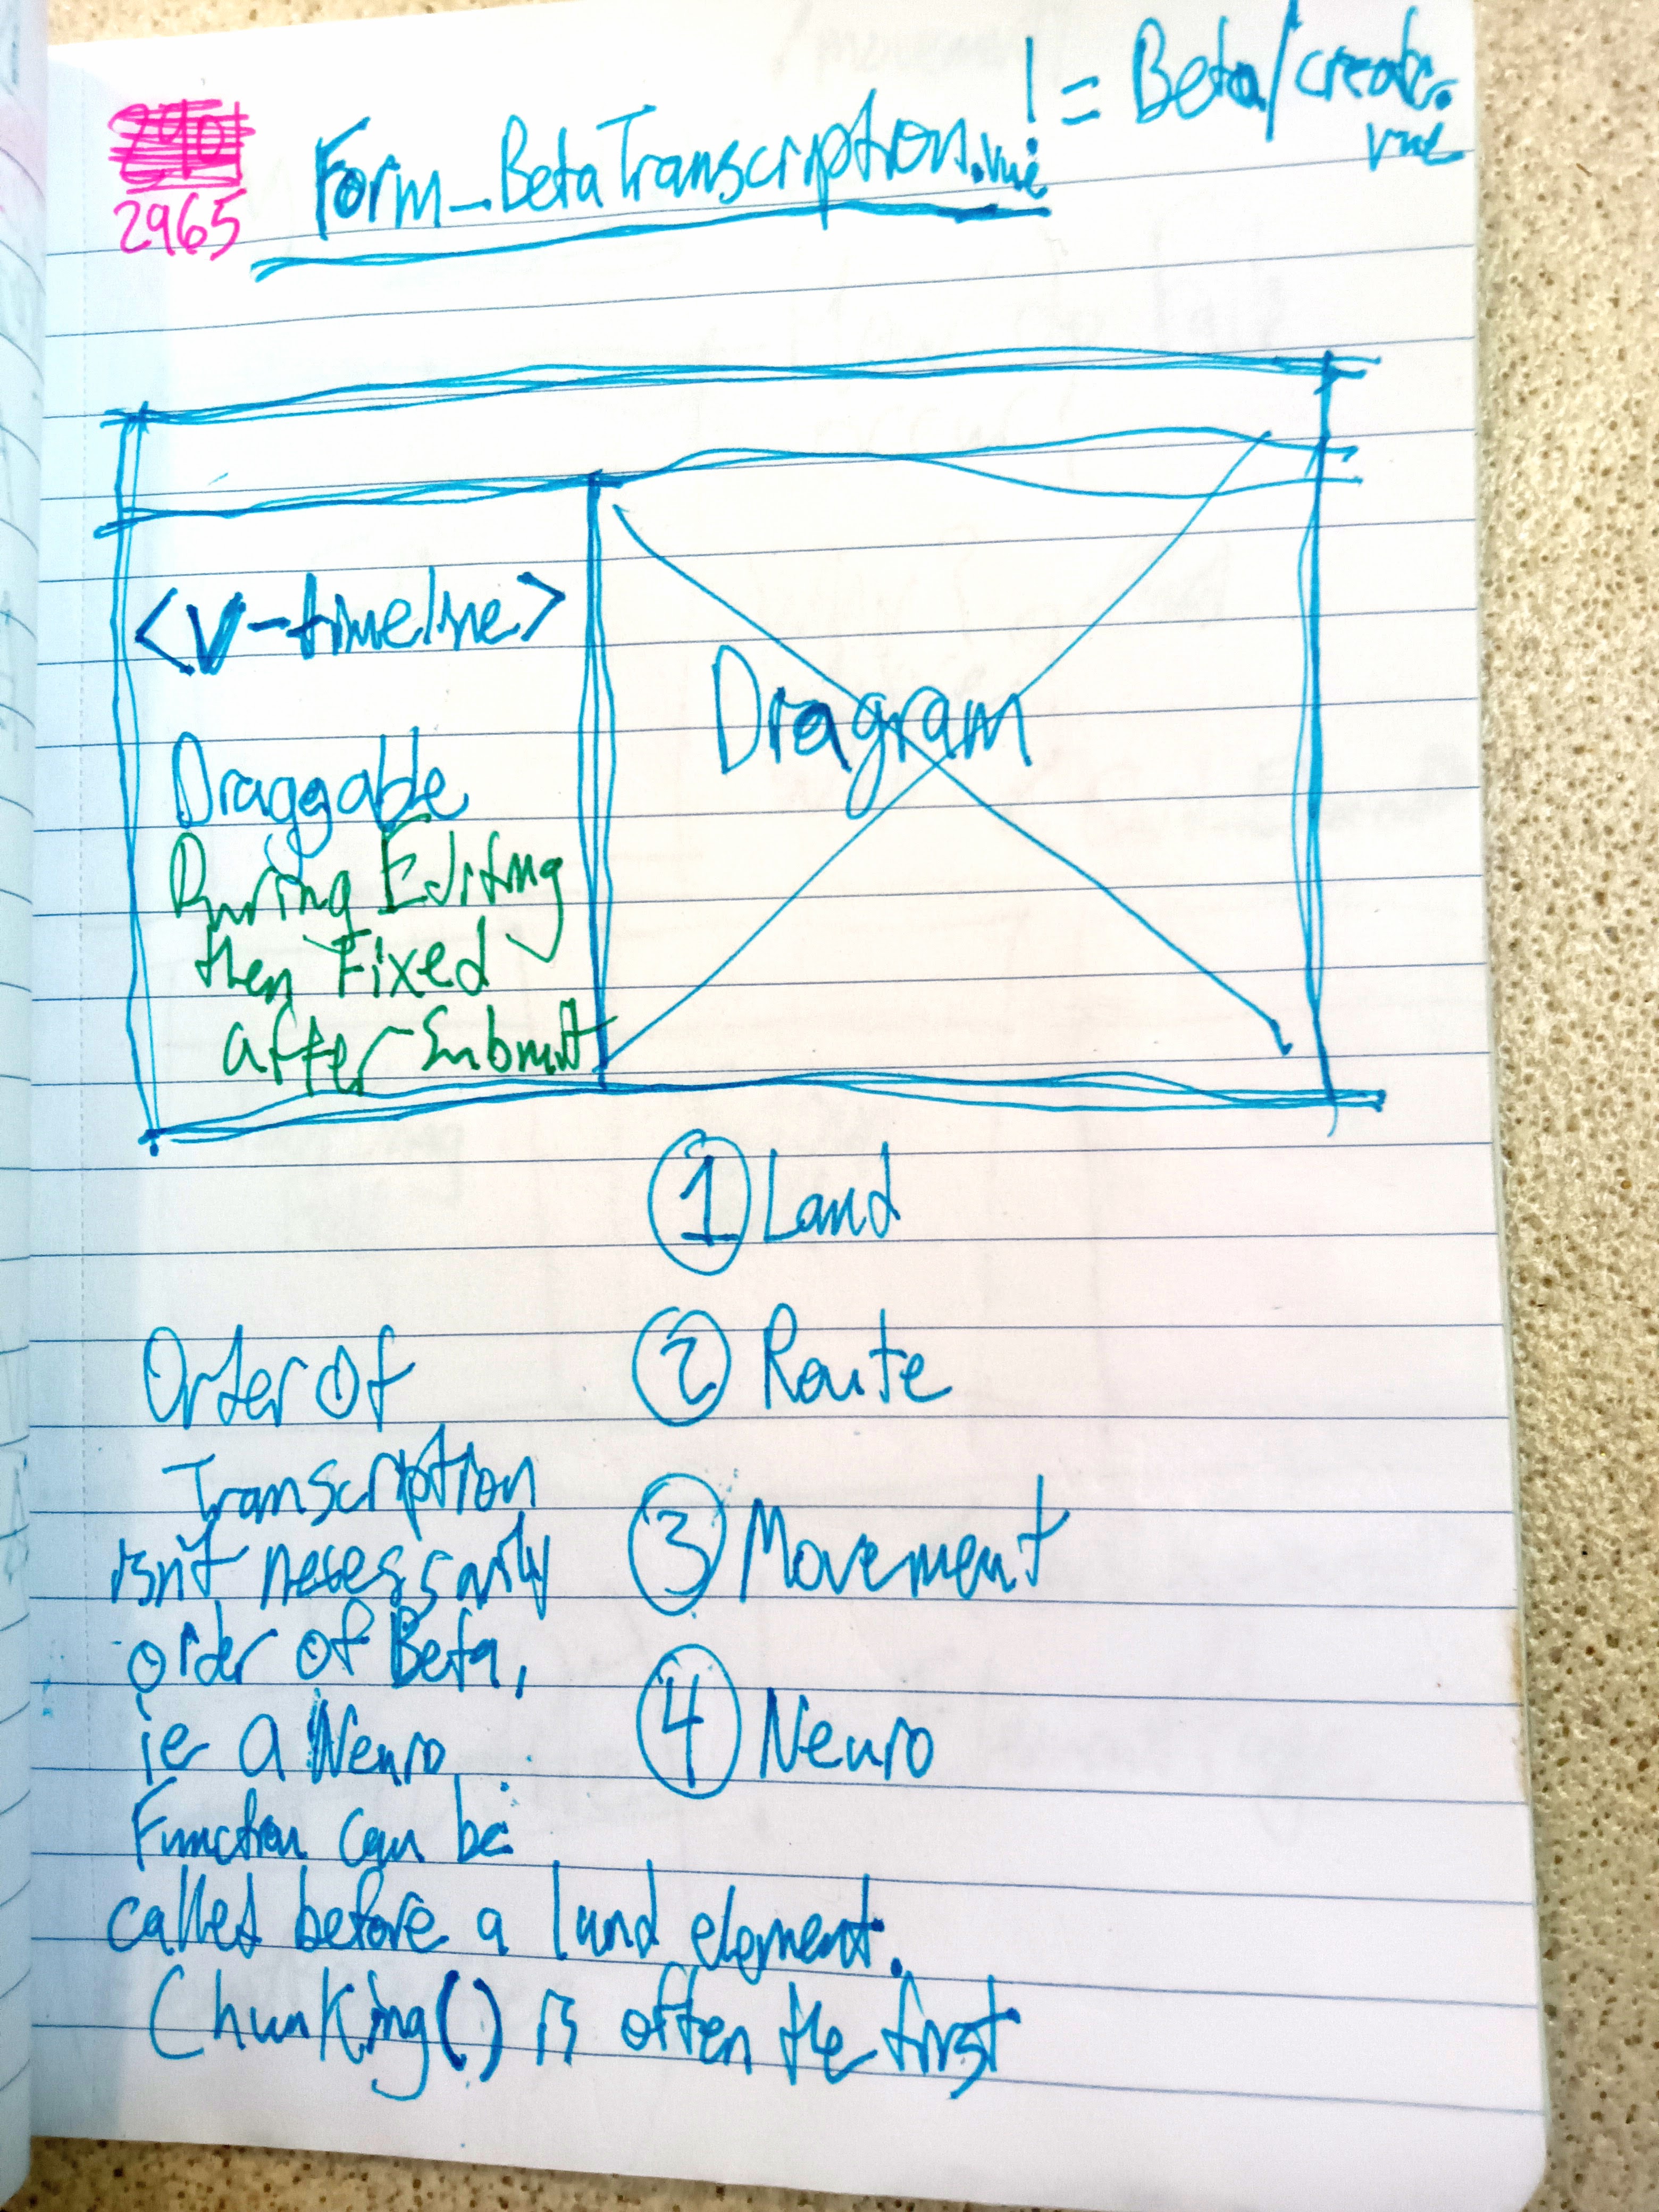 2965
Form_BetaTranscription.vue != Beta/create.
vue
<v-timeline>
Draggable
During Editing
then Fixed
after Submit
Diagram
1 Land
2 Route
3 Movement
4 Neuro
Order of
Transcription
isn't necessarily
order of Beta,
ie a Neuro
Function can be
called before a land element.
Chunking() is often the first